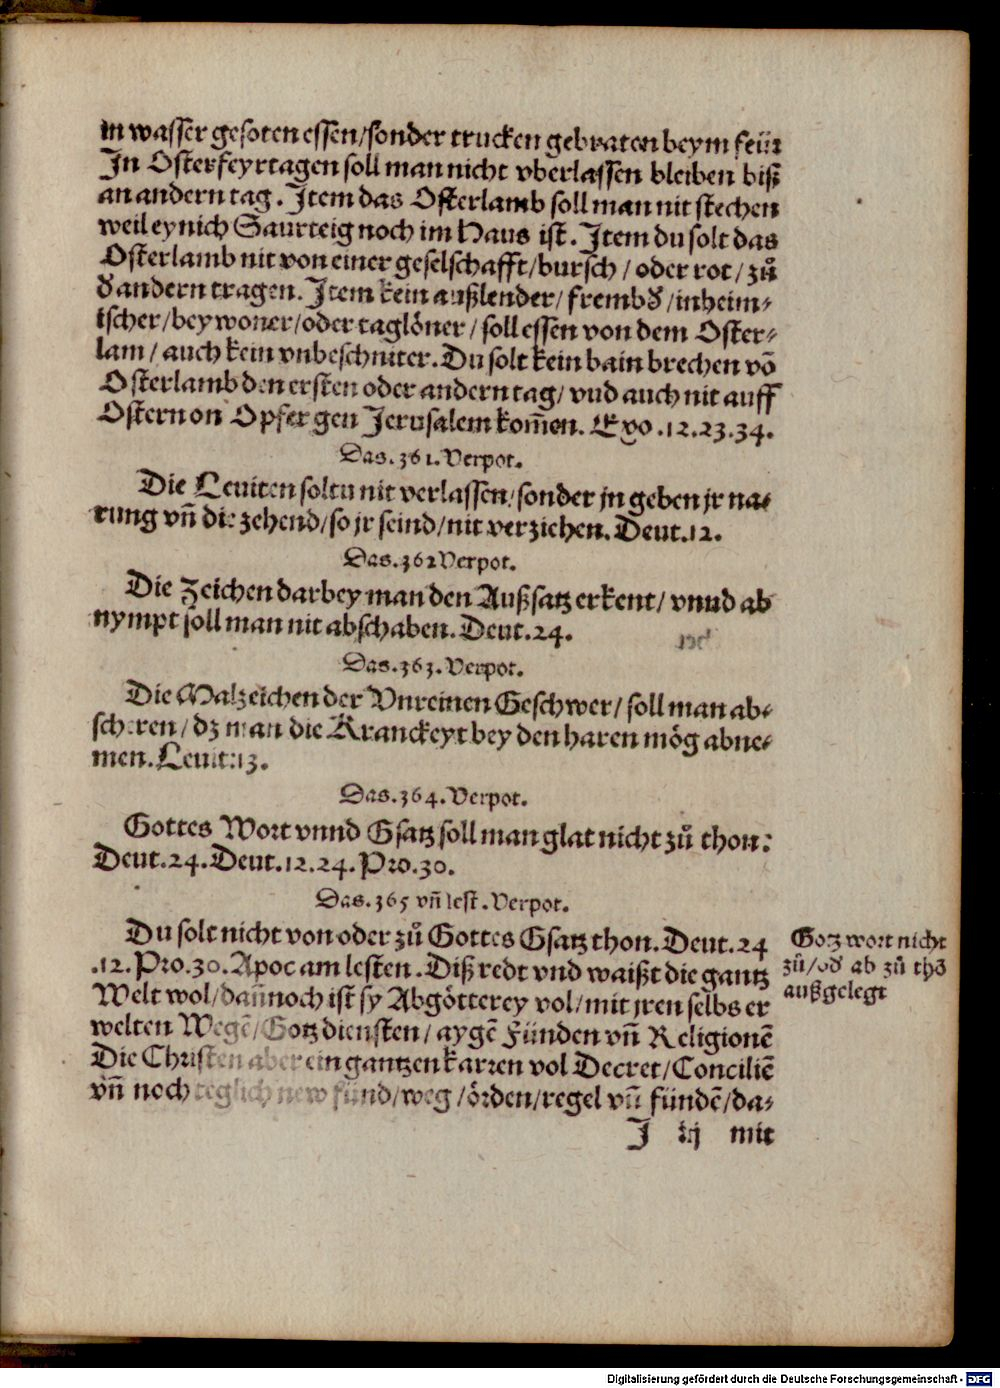 in wasser gesoten essen/sonder trucken gebraten beym feür
In Osterfeyrtagen soll man nicht vberlassen bleiben biß
an andern tag. Item das Osterlamb soll man nit stechen
weil eynich Saurteig noch im Haus ist. Item du solt das
Osterlamb nit von einer geselschafft/bursch/oder rot/zů
d̕ andern tragen. Item kein außlender/frembd̕/inheim-
ischer/beywoner/oder taglöner/soll essen von dem Oster-
lam/auch kein vnbeschniter. Du solt kein bain brechen vō
Osterlamb den ersten oder andern tag/vnd auch nit auff
Ostern on Opfer gen Jerusalem kom̄en. Exo.12.23.34.
Das.361.Verpot.
Die Leuiten soltu nit verlassen/sonder jn geben jr na-
rung vn̄ die zehend/so jr seind/nit verziehen. Deut.12.
Das.362 Verpot.
Die Zeichen darbey man den Außsatz erkent/vnnd ab
nympt soll man nit abschaben. Deut.24.
Das.363.Verpot.
Die Malzeichen der Vnreinen Geschwer/soll man ab-
scheren/dz man die Kranckeyt bey den haren mög abne-
men. Leuit.13.
Das.364.Verpot.
Gottes Wort vnnd Gsatz soll man glat nicht zů thon:
Deut.24.Deut.12.24.Pro.30.
Das.365 vn̄ lest.Verpot.
Du solt nicht von oder zů Gottes Gsatz thon. Deut.24
.12.Pro.30.Apoc am lesten. Diß redt vnd waißt die gantz
Welt wol/dan̄noch ist sy Abgötterey vol/mit jren selbs er
welten Wegē/Gotzdiensten/aygē Fünden vn̄ Religionē
Die Christen aber ein gantzen karren vol Decret/Conciliē
vn̄ noch teglich new fünd/weg/örden/regel vn̄ fündē/da-
J iij mit
Gotz wort nicht
zů/od̕ ab zů thō
außgelegt
Digitalisierung gefördert durch die Deutsche Forschungsgemeinschaft - DFG